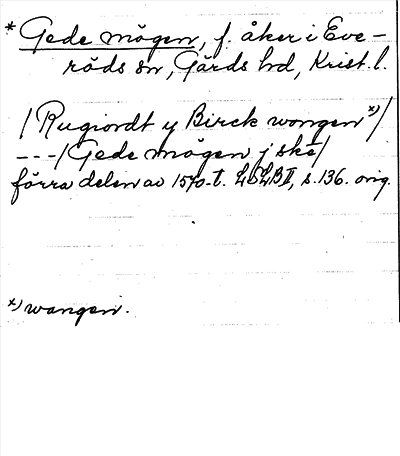 * Gede mögen, f. åker i Eve-
röds sn, Gärds hd, Krist. l.
/Rugiordt y Birck wongen x)/
---/Gede mögen j ske/
förra delen av 1570-t. LSLB II, s. 136. orig.
x) wangen.